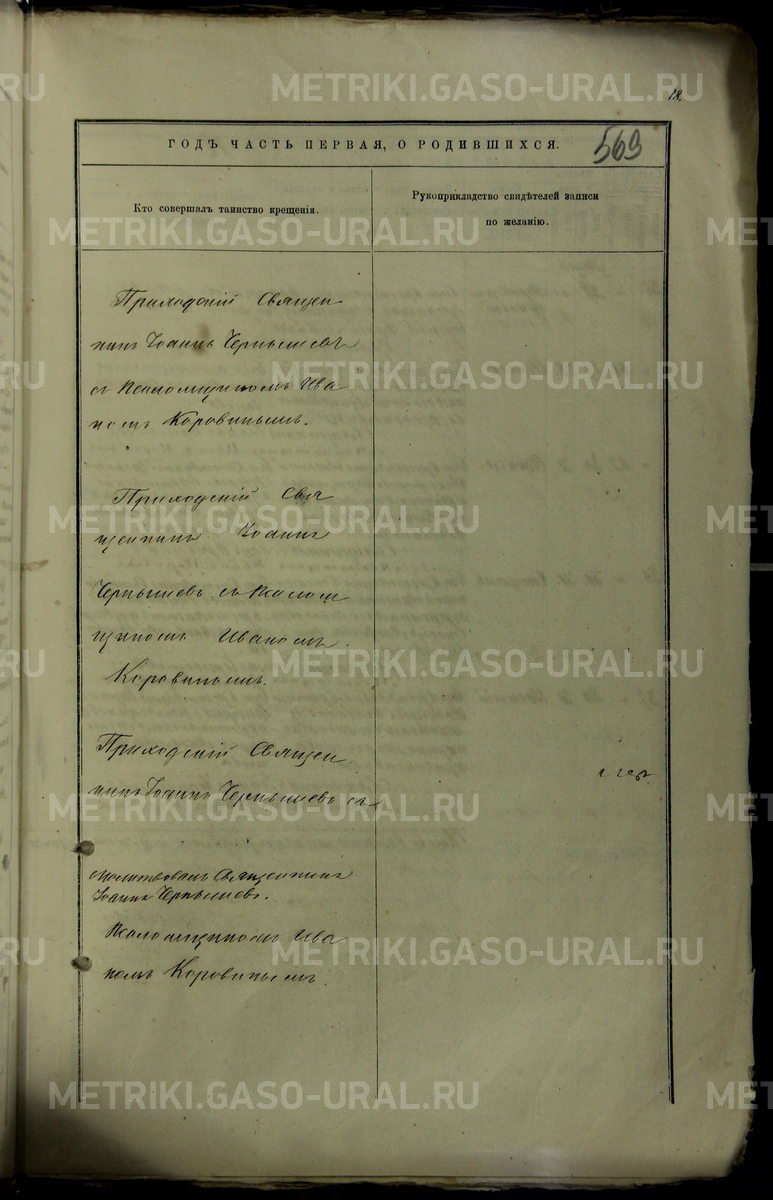 18.
ГОДЪ ЧАСТЬ ПЕРВАЯ, О РОДИВШИХСЯ.
569
Кто совершалъ таинство крещенія.
Рукоприкладство свидѣтелей записи
по желанію.
Приходскій Священ-
никъ Іоаннъ Чернышевъ
съ Псаломщикомъ Ива
номъ Коровинымъ.
Приходскій Свя
щенникъ Іоаннъ
Чернышевъ съ Псалом
щикомъ Иваномъ
Коровинымъ.
Приходскій Священ
никъ Іоаннъ Чернышевъ съ
Молитвовалъ Священникъ
Іоаннъ Чернышевъ.
Псаломщикомъ Ива
номъ Коровинымъ
METRIKI.GASO-URAL.RU